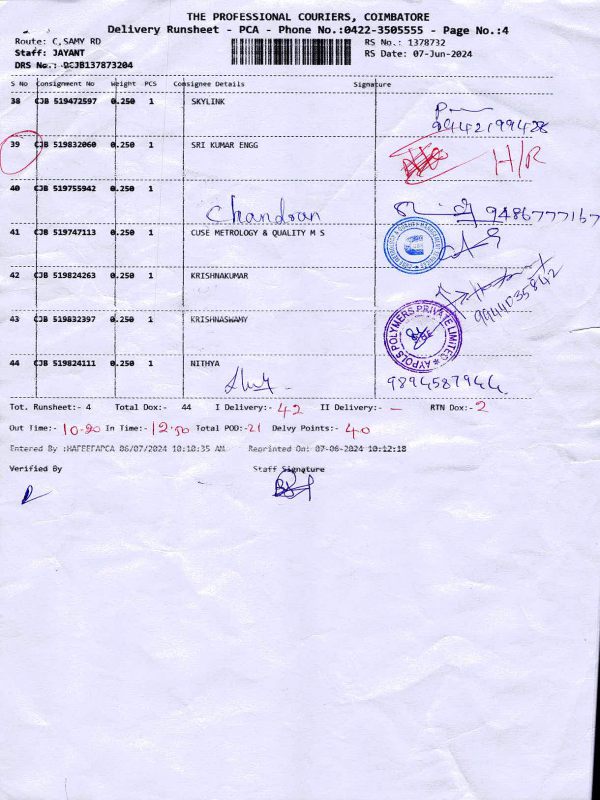 THE PROFESSIONAL COURIERS, COIMBATORE
Delivery Runsheet - PCA - Phone No.:0422-3505555 - Page No.:4
Route: C,SAMY RD
RS No.: 1378732
Staff: JAYANT
RS Date: 07-Jun-2024
DRS No.: DCJB137873204
S No Consignment No Weight PCS Consignee Details Signature
38 CJB 519472597 0.250 1 SKYLINK
99442199428
39 CJB 519832060 0.250 1 SRI KUMAR ENGG H/R
40 CJB 519755942 0.250 1
Chandran 9486777167
41 CJB 519747113 0.250 1 CUSE METROLOGY & QUALITY M S
42 CJB 519824263 0.250 1 KRISHNAKUMAR
9944735842
43 CJB 519832397 0.250 1 KRISHNASWAMY
AYPOLS POLYMERS PRIVATE LIMITED
44 CJB 519824111 0.250 1 NITHYA
9894587944
Tot. Runsheet:- 4 Total Dox:- 44 I Delivery:- 42 II Delivery:- — RTN Dox:- 2
Out Time:- 10-20 In Time:- 12.50 Total POD:-21 Delvy Points:- 40
Entered By : 06/07/2024 10:10:35 AM Reprinted On: 07-06-2024 10:12:18
Verified By Staff Signature